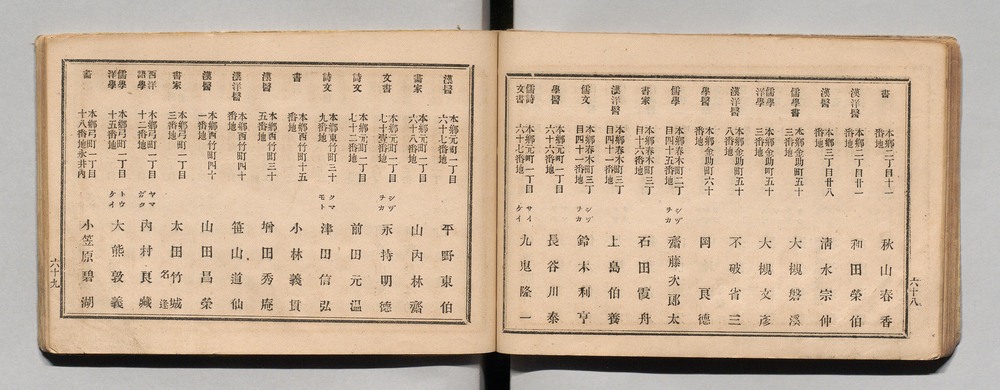 書 本鄕二丁目十一番地 秋山春香
漢洋醫 本鄕二丁目廿一番地 和田榮伯
漢醫 本鄕三丁目廿八番地 淸水宗仲
儒學書 本鄕金助町五十三番地 大槻磐溪
儒學洋學 本鄕金助町五十三番地 大槻文彥
漢洋醫 本鄕金助町五十八番地 不破省三
學醫 本鄕金助町六十番地 岡良德
儒學 本鄕春木町二丁目四十五番地 シヅチカ 齋藤次郞太
書家 本鄕春木町三丁目十六番地 石田霞舟
漢洋醫 本鄕春木町三丁目四十一番地 上島伯養
儒文 本鄕春木町三丁目四十一番地 シヅチカ 鈴木利亨
學醫 本鄕元町一丁目六十六番地 長谷川泰
儒詩文書 本鄕元町一丁目六十七番地 サイケイ 九鬼隆一
六十八
漢醫 本鄕元町一丁目六十七番地 平野東伯
書家 本鄕元町一丁目六十八番地 山內林齋
文書 本鄕元町一丁目七十番地 シヅチカ 永持明德
詩文 本鄕元町一丁目七十二番地 前田元溫
詩文 本鄕東竹町三十九番地 クマモト 津田信弘
書 本鄕西竹町十五番地 小林義貫
漢醫 本鄕西竹町三十五番地 增田秀庵
漢洋醫 本鄕西竹町四十番地 笹山道仙
漢醫 本鄕西竹町四十一番地 山田昌榮
書家 本鄕弓町一丁目三番地 太田竹城 名逢
西洋語學 本鄕弓町一丁目十二番地 ヤマガタ 內村良藏
儒學洋學 本鄕弓町一丁目十五番地 トウケイ 大熊敦義
畫 本鄕弓町一丁目十八番地永井內 小笠原碧湖
六十九